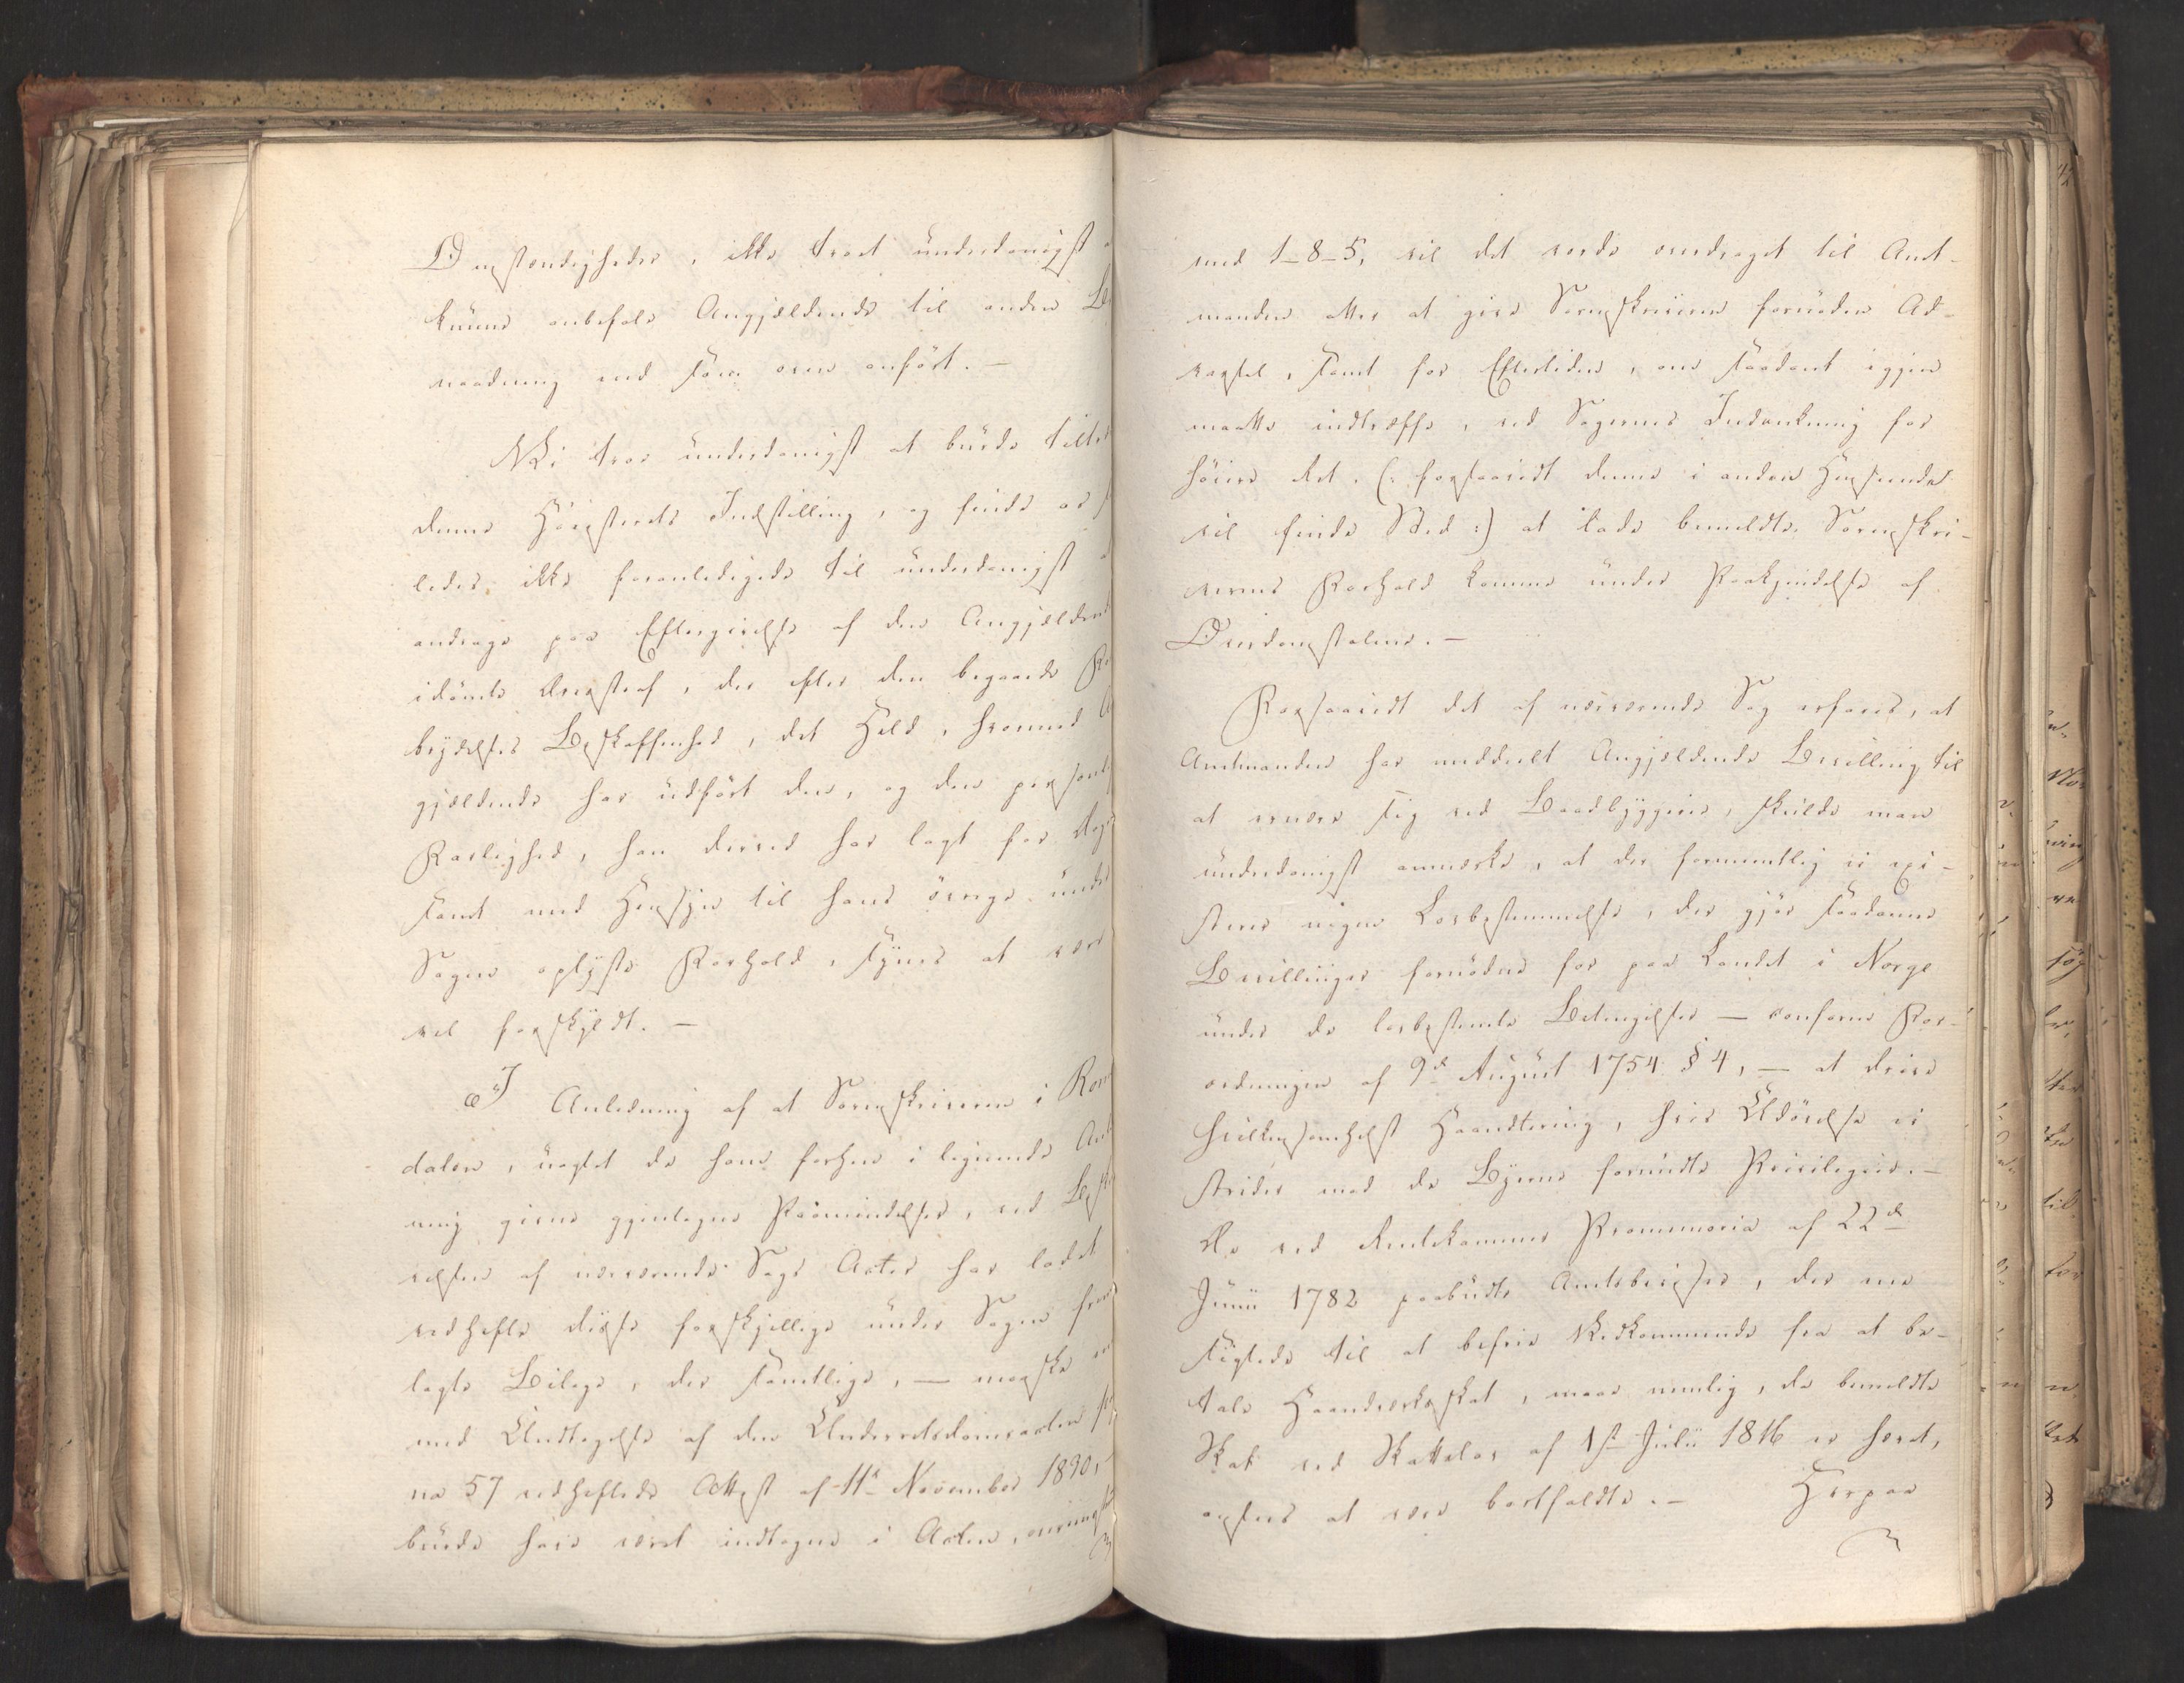 Omstændigheder, ikke troet underdanigst
kunne anbefale Angjældende til anden Be
naadning end som oven anført. —
Vi troe underdanigst at burde tiltræ
denne Höiesterets Indstilling, og finde os
ledes ikke foranledigede til underdanigst
andrage paa Eftergivelse af den Angjældend
idömte Ærestraf, der efter den begaaede For
brydelses Beskaffenhed, det Held, hvormed An
gjældende har udfört den, og den personli
Farlighed, han derved har lagt for Dage
samt med Hensyn til hans övrige under
Sagen oplyste Forhold, synes at være
vel forskyldt. —
I Anledning af at Sorenskriveren i Roms
dalen, uagtet de ham forhen i lignende An
ning givne gjentagne Paamindelser, ved Besk
velsen af nærværende Sags Acter har ladet
vedhefte disse forskjellige under Sagen frem
lagte Bilage, der samtlige, — maaske
med Undtagelse af den Underretsdomsacten
no 57 vedheftede Attest af 11te November 1830,
burde have været indtagne i Acten,
med 1–8–5, vil det vorde overdraget til Amt-
manden atter at give Sorenskriveren fornöden Ad-
varsel, samt for Eftertiden, om saadant igjen
maatte indtræffe, ved Sagernes Indankning for
höiere Ret. (: forsaavidt denne i anden Henseende
vil finde Sted :) at lade bemeldte Sorenskri-
verens Forhold komme under Paakjendelse af
Overdomstolene. —
Forsaavidt det af nærværende Sag erfares, at
Amtmanden har meddeelt Angjældende Bevilling til
at ernære sig ved Baadbyggerie, skulde man
underdanigst anmærke, at der formeentlig ei exi-
sterer nogen Lovbestemmelse, der gjör saadanne
Bevillinger fornödne for paa Landet i Norge
under de lovbestemte Betingelser — conform For-
ordningen af 9de August 1754 § 4, — at drive
hvilkensomhelst Haandtering, hvis Udövelse ei
strider mod de Byerne forundte Privilegier. —
De ved Rentekammer Promemoria af 22de
Junii 1782 paabudte Amtsbeviser, der
sigtede til at befrie Vedkommende fra at be-
tale Haandværksskat, maae nemlig, da bemeldte
Skat ved Skattelov af 1ste Julii 1816 er hævet,
ansees at være bortfaldte. — Herpaa